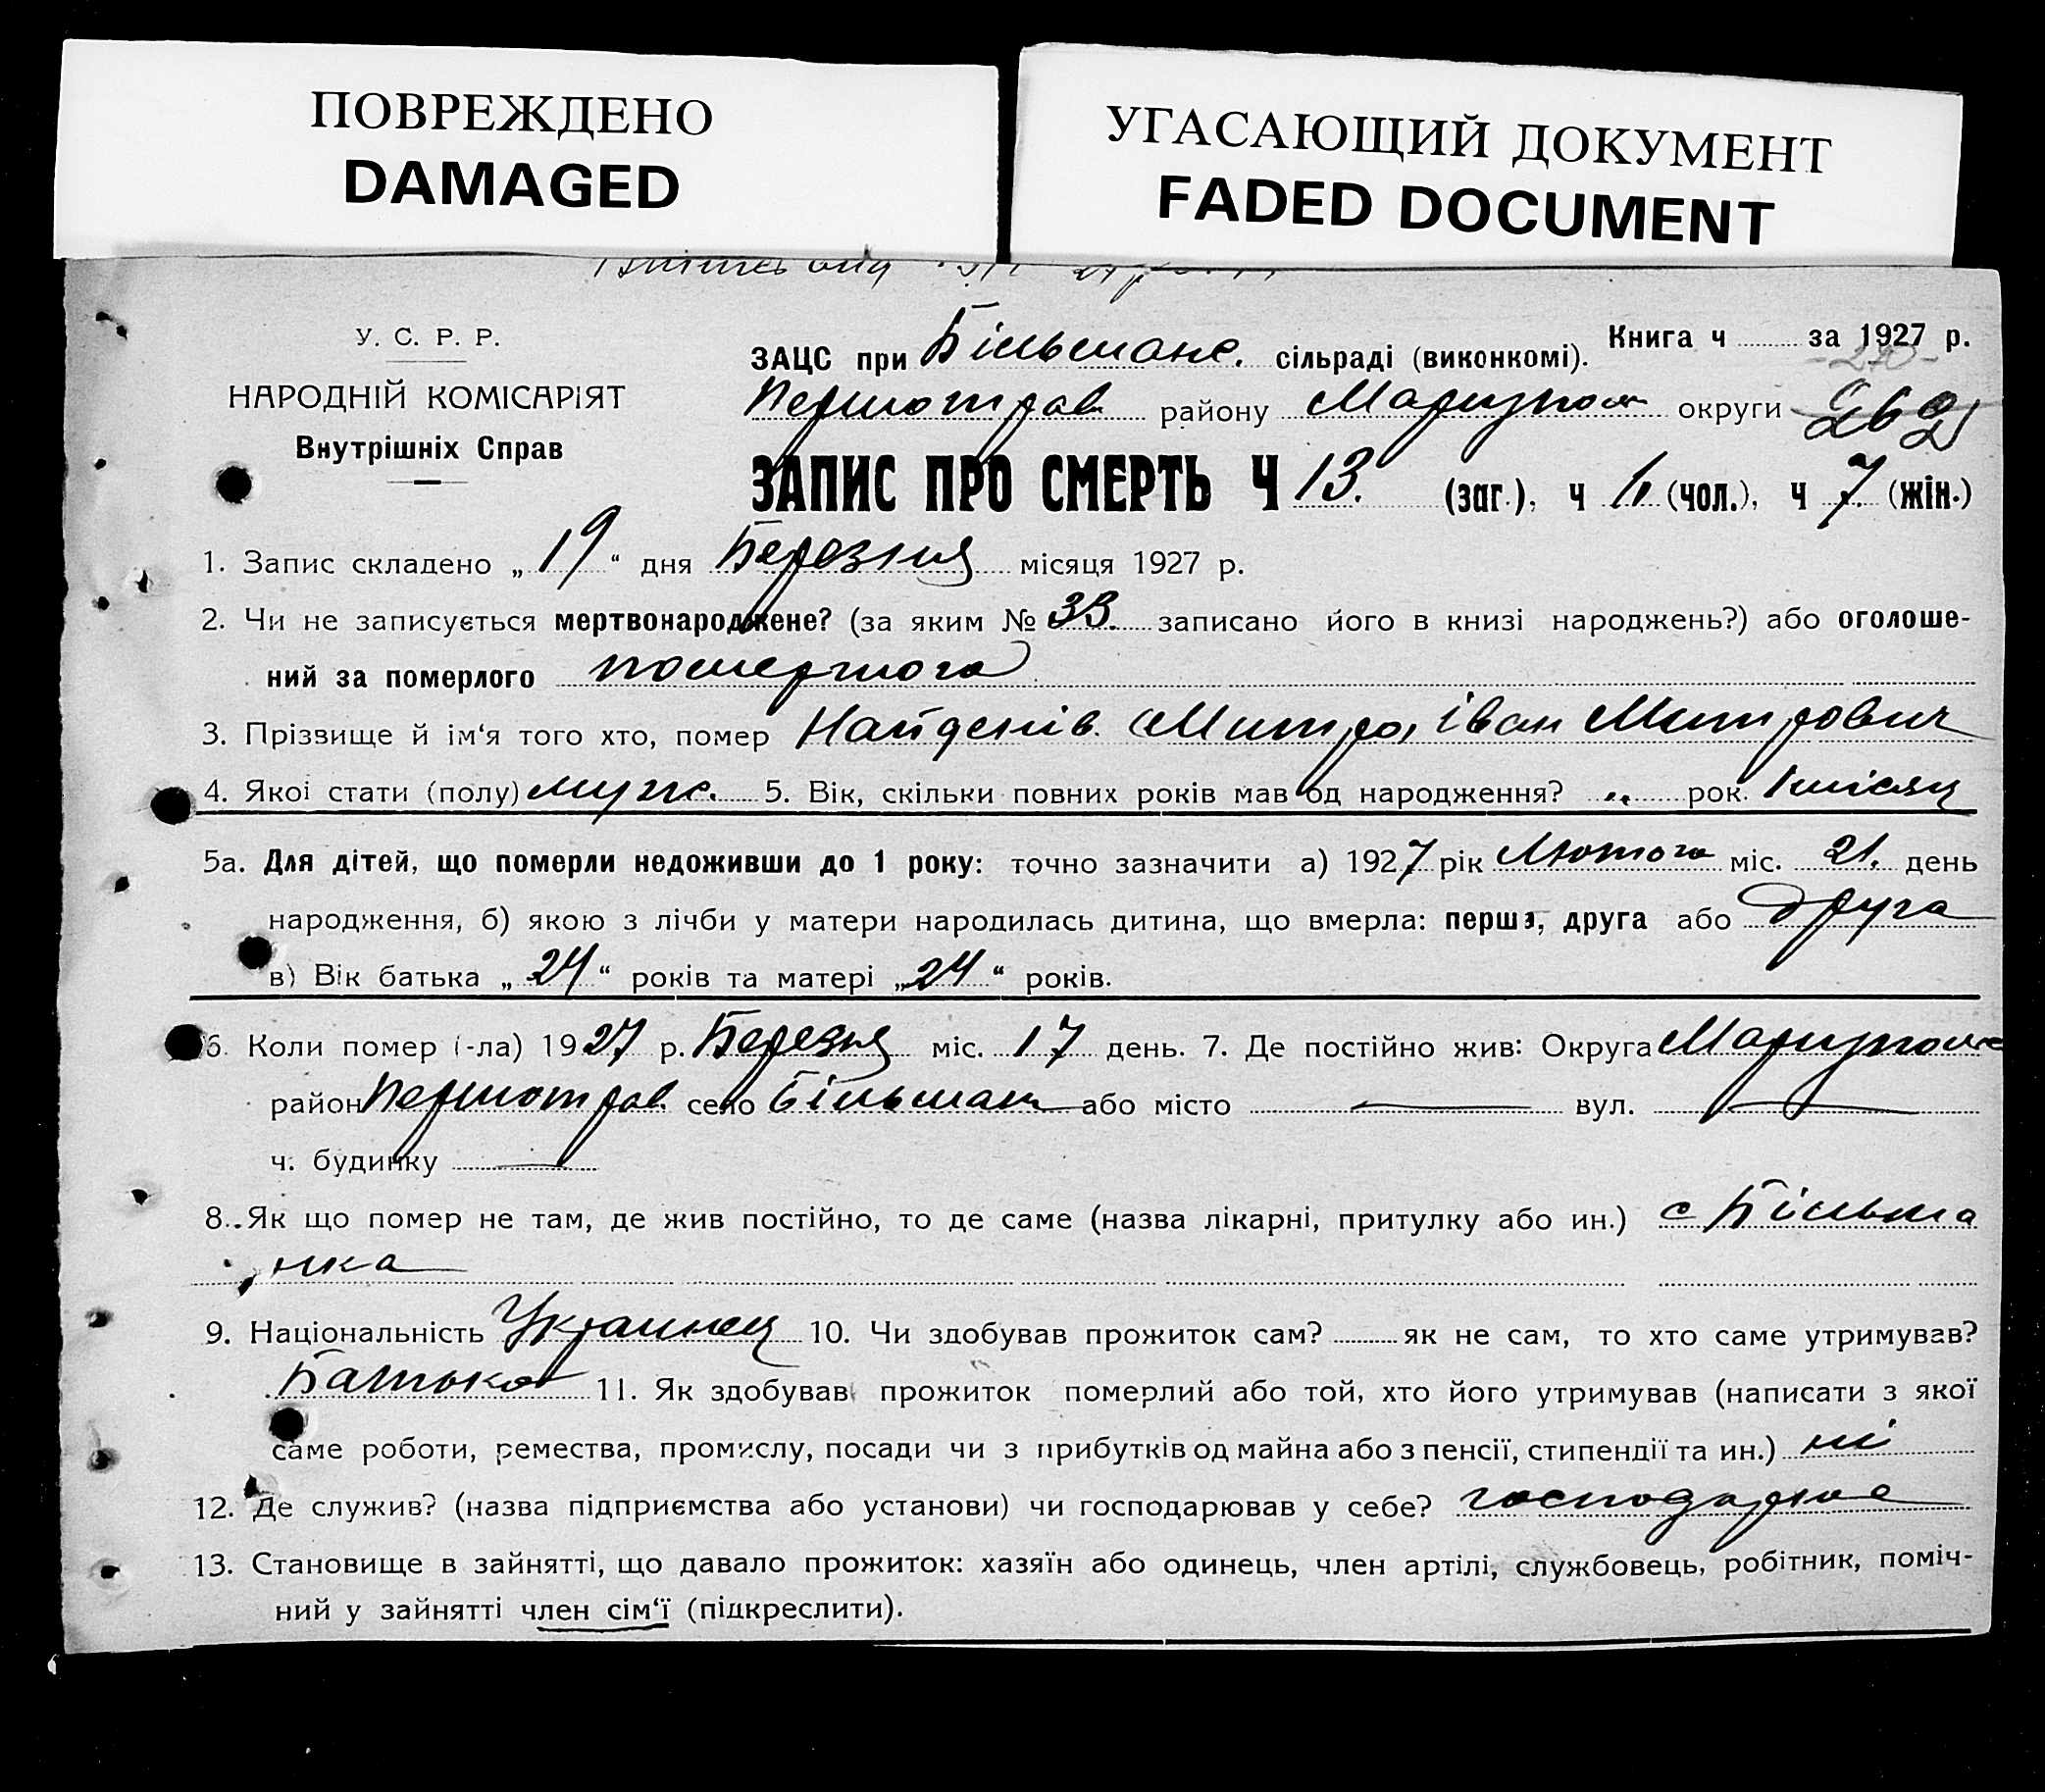 ПОВРЕЖДЕНО
DAMAGED
УГАСАЮЩИЙ ДОКУМЕНТ
FADED DOCUMENT
У. С. Р. Р.
НАРОДНІЙ КОМІСАРІЯТ
Внутрішніх Справ
Книга ч за 1927 р.
ЗАЦС при Більшанс. сільраді (виконкомі).
Першотрав району Маріупол округи 262
ЗАПИС ПРО СМЕРТЬ Ч 13. (заг.), ч (чол.), ч 7. (жін.)
1. Запис складено „ 19 “ дня Березня місяця 1927 р.
2. Чи не записується мертвонароджене? (за яким № 33. записано його в книзі народжень?) або оголоше-
ний за померлого померлого
3. Прізвище й ім‘я того хто, помер Найденів. Митро, Іван Митрович
4. Якої стати (полу) муж. 5. Вік, скільки повних років мав од народження? „ рок. 1 місяц
5а. Для дітей, що померли недоживши до 1 року: точно зазначити а) 1927 рік Лютого міс. 21. день
народження, б) якою з лічби у матери народилась дитина, що вмерла: перша, друга або друга
в) Вік батька „ 24 “ років та матері „ 24 “ років.
6. Коли помер (-ла) 1927 р. Березня міс. 17 день. 7. Де постійно жив: Округа Маріупольс
район Першотрав. село Більшан або місто — вул. —
ч. будинку —
8. Як що помер не там, де жив постійно, то де саме (назва лікарні, притулку або ин.) с Більша
нка
9. Національність Украинец 10. Чи здобував прожиток сам? як не сам, то хто саме утримував?
Батько 11. Як здобував прожиток померлий або той, хто його утримував (написати з якої
саме роботи, ремества, промислу, посади чи з прибутків од майна або з пенсії, стипендії та ин.) ні
12. Де служив? (назва підприємства або установи) чи господарював у себе? господарює
13. Становище в зайнятті, що давало прожиток: хазяїн або одинець, член артілі, службовець, робітник, поміч-
ний у зайнятті член сім‘ї (підкреслити).